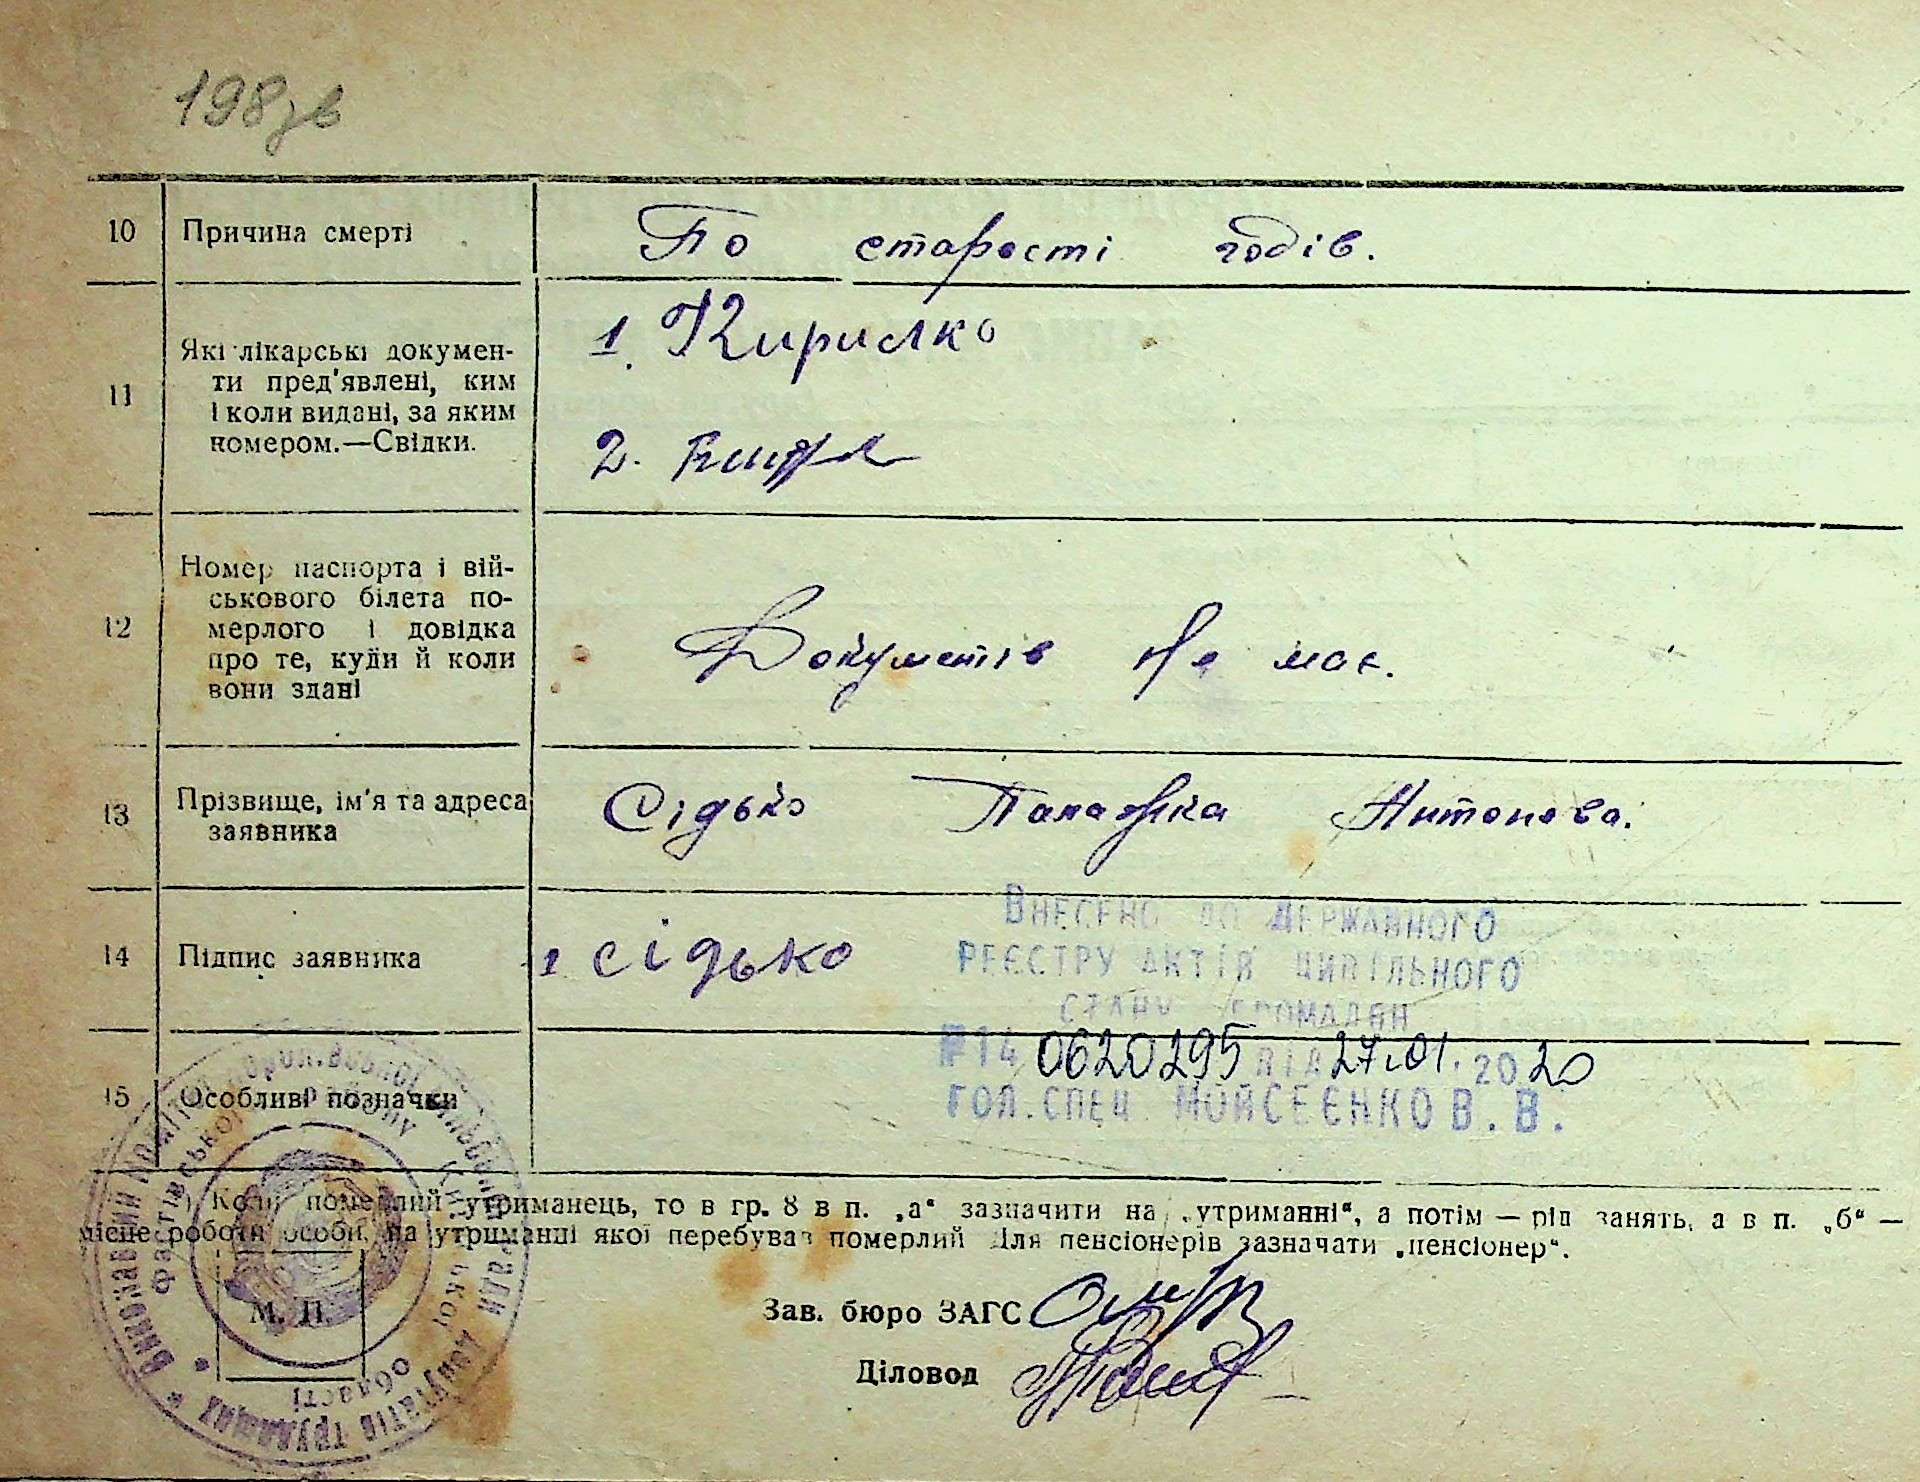 198зв
10 Причина смерті По старості годів.
11 Які лікарські докумен-
ти пред'явлені, ким
і коли видані, за яким
номером.—Свідки.
1. Кирилко
2.
12 Номер паспорта і вій-
ськового білета по-
мерлого і довідка
про те, куди й коли
вони здані
Документів не має.
13 Прізвище, ім'я та адреса
заявника
Сідько Палажка Антонова.
14 Підпис заявника 1 сідько
ВНЕСЕНО ДО ДЕРЖАВНОГО
РЕЄСТРУ АКТІВ ЦИВІЛЬНОГО
СТАНУ ГРОМАДЯН
№14 0620295 ВІД 27.01.2020
ГОЛ.СПЕЦ МОЙСЕЄНКО В.В.
15 Особливі позначки
) Коли померлий утриманець, то в гр. 8 в п. „а“ зазначити на „утриманні“, а потім — рід занять, а в п. „б“ —
місце роботи особи, на утриманні якої перебував померлий Для пенсіонерів зазначати „пенсіонер“.
М. П.
Зав. бюро ЗАГС
Діловод
Виконавчий комітет сільської Ради депутатів трудящих
Фастівського району Київської області